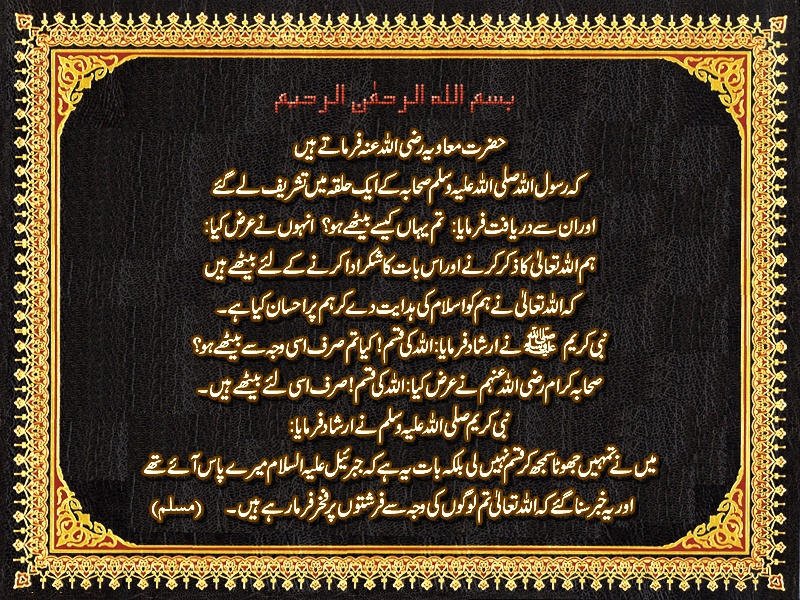 بسم اللہ الرحمٰن الرحیم
حضرت معاویہ رضی اللہ عنہ فرماتے ہیں
کہ رسول اللہ صلی اللہ علیہ وسلم صحابہ کے ایک حلقہ میں تشریف لے گئے
اور ان سے دریافت فرمایا: تم یہاں کیسے بیٹھے ہو؟ انہوں نے عرض کیا:
ہم اللہ تعالیٰ کا ذکر کرنے اور اس بات کا شکر ادا کرنے کے لئے بیٹھے ہیں
کہ اللہ تعالیٰ نے ہم کو اسلام کی ہدایت دے کر ہم پر احسان کیا ہے۔
نبی کریم ﷺ نے ارشاد فرمایا: اللہ کی قسم! کیا تم صرف اسی وجہ سے بیٹھے ہو؟
صحابہ کرام رضی اللہ عنہم نے عرض کیا: اللہ کی قسم! صرف اسی لئے بیٹھے ہیں۔
نبی کریم صلی اللہ علیہ وسلم نے ارشاد فرمایا:
میں نے تمہیں جھوٹا سمجھ کر قسم نہیں لی بلکہ بات یہ ہے کہ جبرئیل علیہ السلام میرے پاس آئے تھے
اور یہ خبر سنا گئے کہ اللہ تعالیٰ تم لوگوں کی وجہ سے فرشتوں پر فخر فرما رہے ہیں۔ (مسلم)